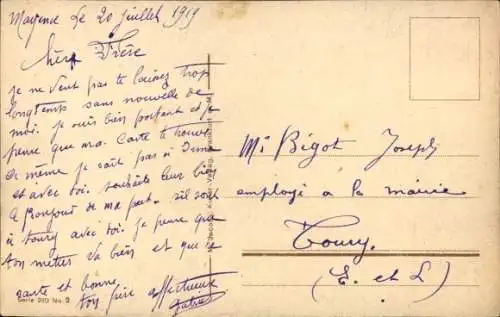 Mayence Le 20 juillet 1919
Cher Frère
je ne veut pas te laissez trop
longtemts sans nouvelle de
moi. je suis bien portant et je
pense que ma Carte te trouve
de même je sait pas si
et avec toi. souhaite leur bien
le Bonjour de ma part. s'il sont
à toury avec toi. je pense que
ton métier va bien et que
sante et bonne.
ton frère affectueux
Mr Bigot Joseph
employé a la mairie
Toury.
(E. et L)
Serie 910 No. 9